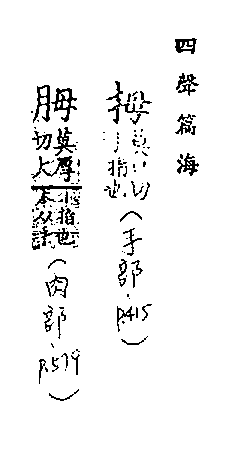 四聲篇海
拇莫切指也(手部.P.415)
胟莫厚切大指也本从手(肉部.P.579)